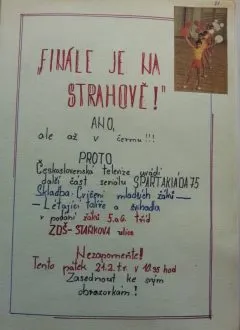 „FINÁLE JE NA
STRAHOVĚ!"
ANO,
ale až v červnu!!!
PROTO
Československá televize uvádí
další část seriálu SPARTAKIÁDA 75
Skladba: Cvičení mladších žáků
- Létající talíře a švihadla
v podání žáků 5. a 6. tříd
ZDŠ - SIRKOVA ulice
Nezapomeňte!
Tento pátek 21.2. t.r. v hod
Zasednout ke svým
obrazovkám!